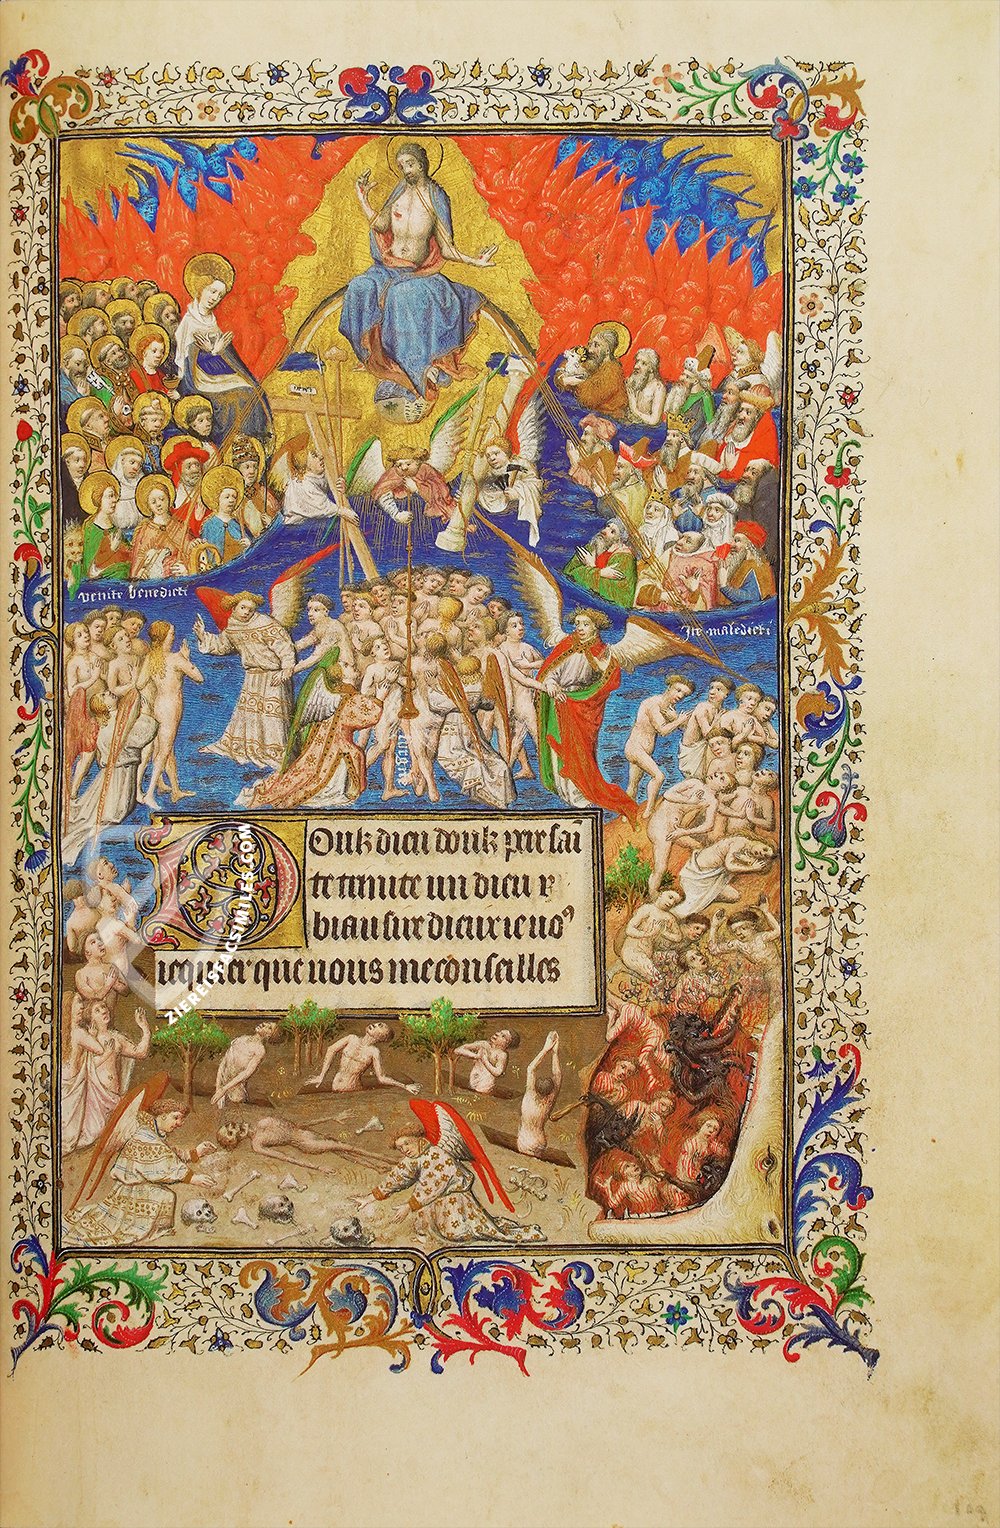 venite benedicti
Ite maledicti
surgite
Doulz dieu doulz pere sai
te trinite un dieu
biau sire dieux ie voꝰ
requier que nous me conseilles
ZIEREIS FACSIMILES.COM